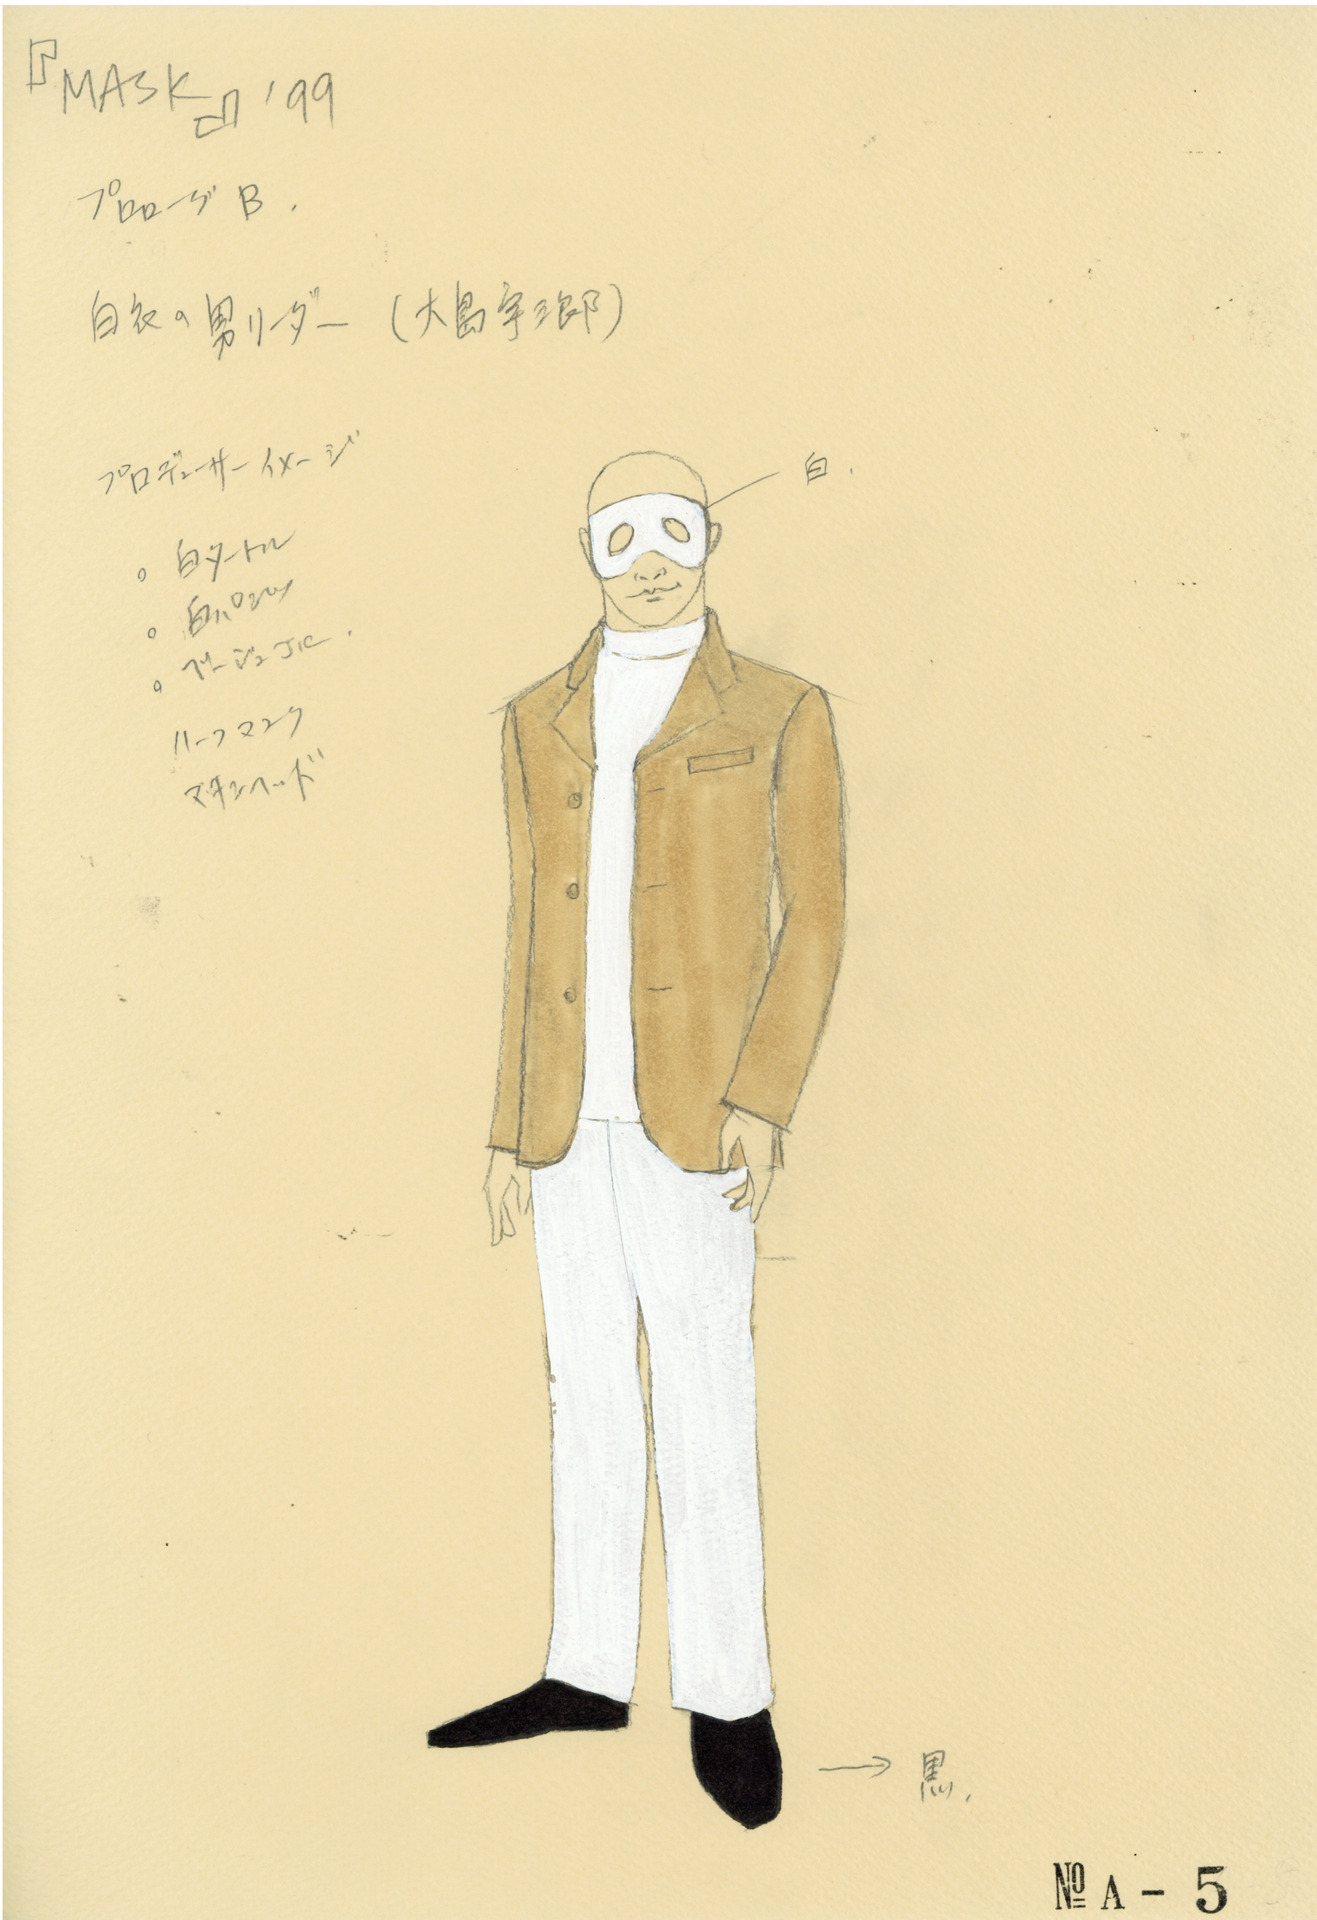 『MASK』'99
プロローグ B.
白衣の男リーダー (大島宇三郎)
プロデューサーイメージ
白.
。白タートル
。白パンツ
。ベージュJK.
ハーフマスク
スキンヘッド
→ 黒.
№ A - 5